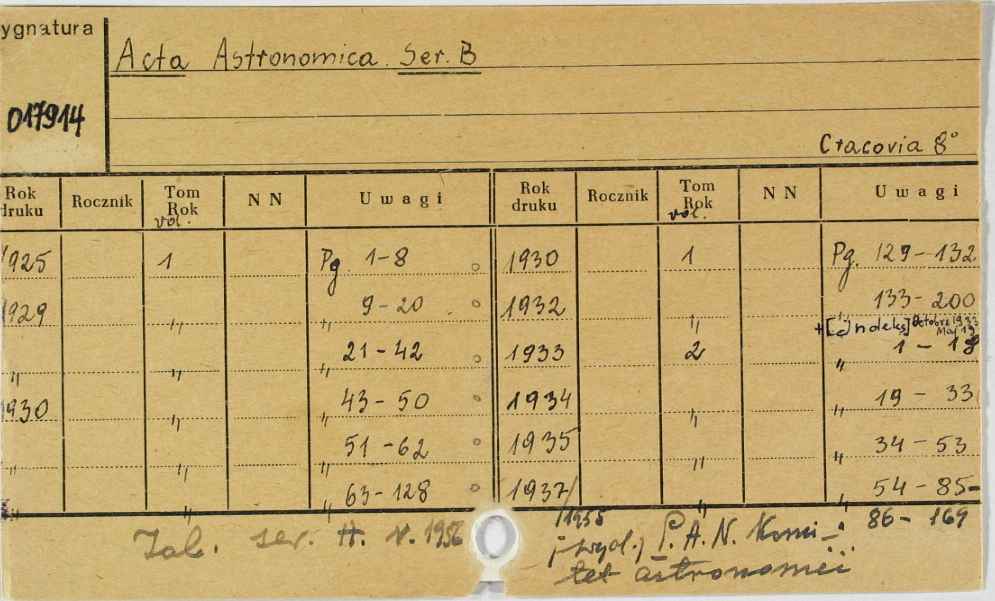 ygnatura
Acta Astronomica. Ser. B
017914
Cracovia 8°
Rok druku Rocznik Tom Rok vol. N N Uwagi Rok druku Rocznik Tom Rok vol. N N Uwagi
1925 1 Pg 1-8 1930 1 Pg. 129-132
1929 " " 9-20 1932 " " 133-200
" " 21-42 1933 2 " 1-18
930 " " 43-50 1934 " " 19-33
" " " 51-62 1935 " " 34-53
" " " 63-128 1937/1955 " " 54-85-
86-169
ser. V. 1956
P. A. N. Komi-
tet astronomii